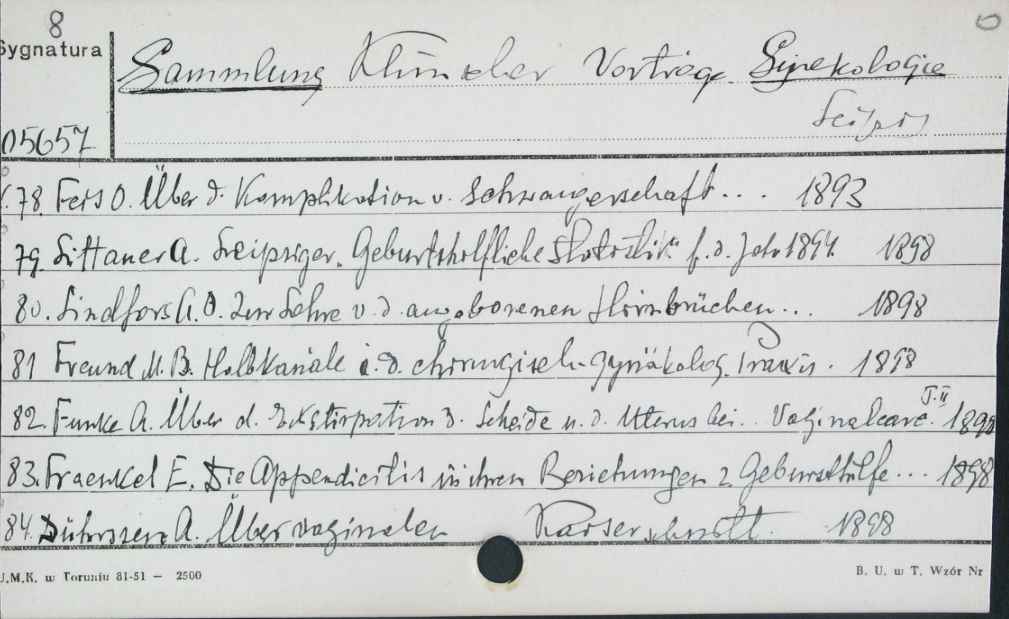 8
Sygnatura
Sammlung Klinischer Vorträge. Ginekologie
Leipzig
05657
78. Feis O. Über d. Komplikation v. Schwangerschaft... 1893
79. Littauer A. Leipziger. Geburtshilfliche Statistik f. d. Jahr 1894. 1898
80. Lindfors A. O. Zur Lehre v. d. angeborenen Hirnbrüchen... 1898
81 Freund M. B. Halbkanäle i. d. chirurgisch-gynäkolog. Praxis. 1898
82. Funke A. Über d. Exstirpation d. Scheide u. d. Uterus bei.. Vaginalcarc. T. II 1898
83. Fraenkel E. Die Appendicitis in ihren Beziehungen z. Geburtshilfe... 1898
84. Dührssen A. Über vaginalen Kaiserschnitt. 1898
U.M.K. w Toruniu 81-51 — 2500
B. U. w T. Wzór Nr